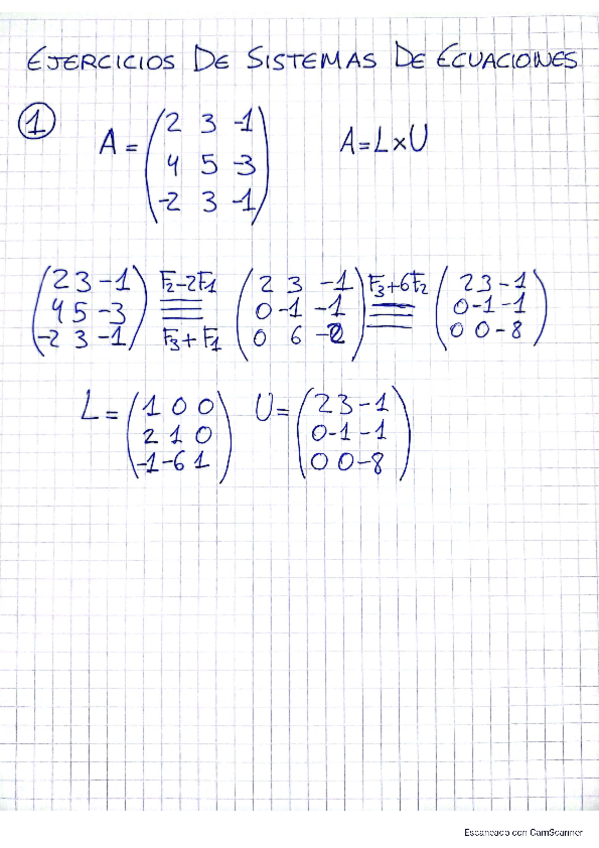 EJERCICIOS DE SISTEMAS DE ECUACIONES
1
A = (2 3 -1
4 5 -3
-2 3 -1)
A = L x U
(2 3 -1
4 5 -3
-2 3 -1)
F2-2F1
F3+F1
(2 3 -1
0 -1 -1
0 6 -2)
F3+6F2
(2 3 -1
0 -1 -1
0 0 -8)
L = (1 0 0
2 1 0
-1 -6 1)
U = (2 3 -1
0 -1 -1
0 0 -8)
Escaneado con CamScanner